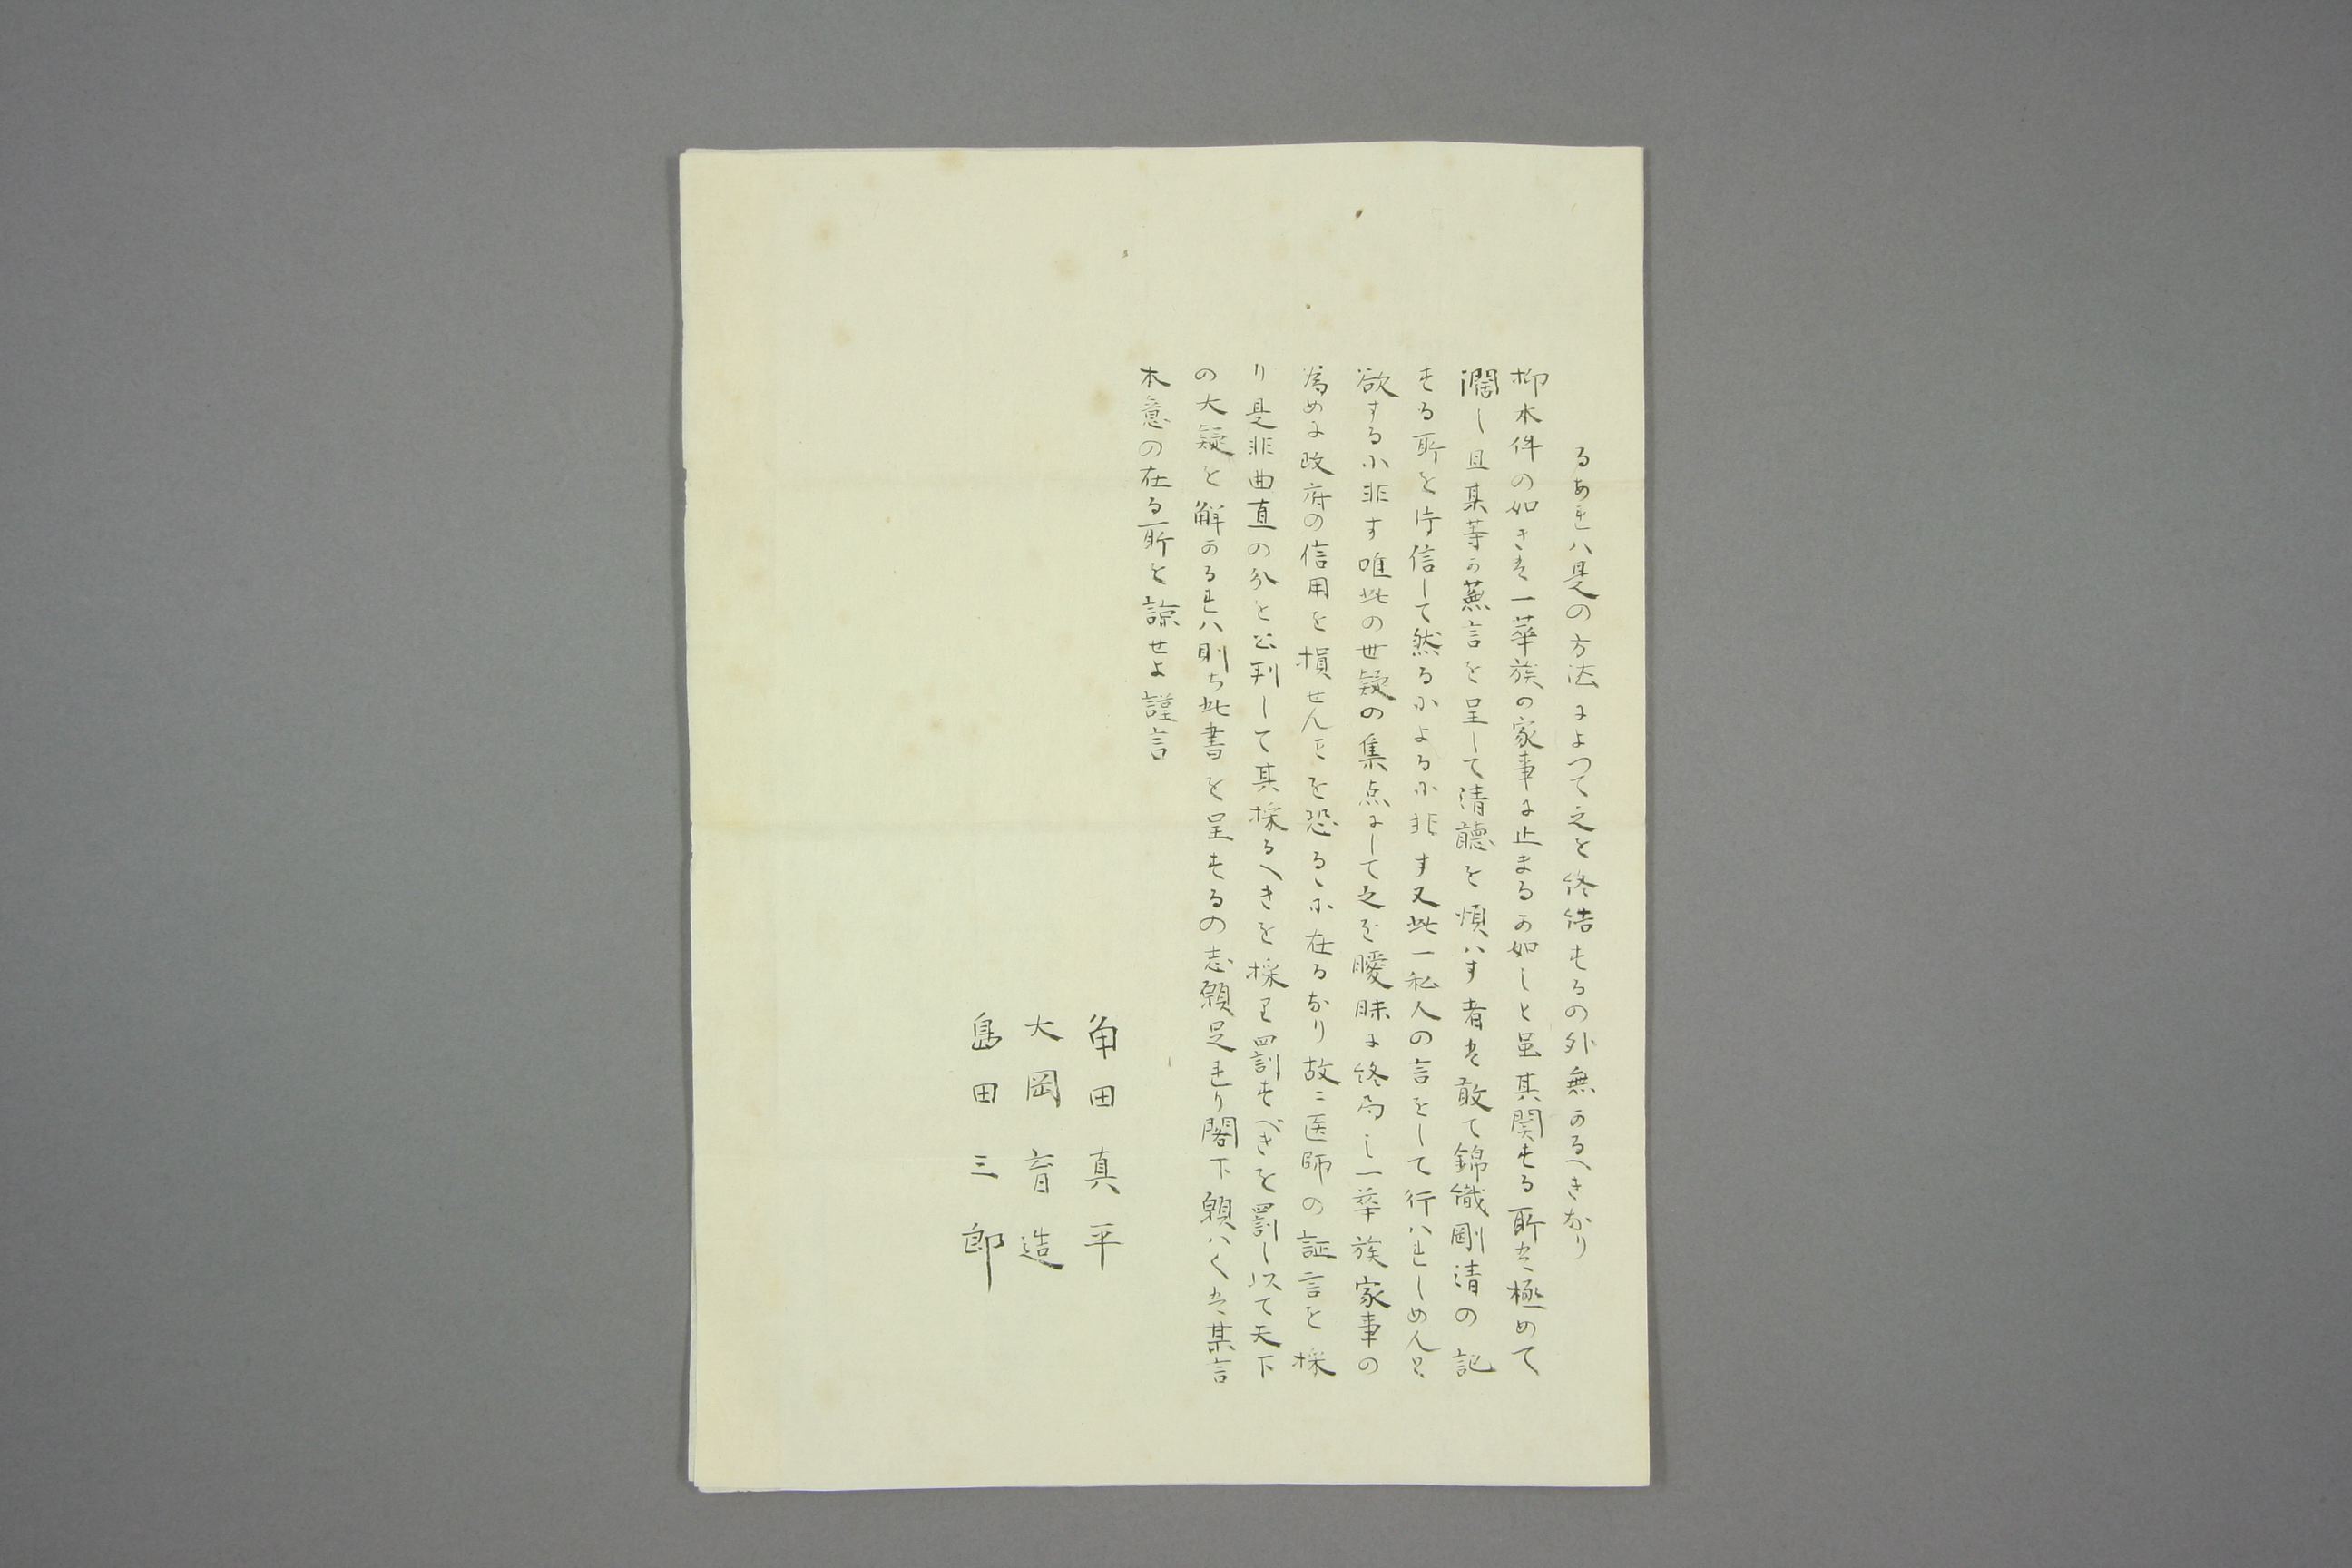 るあれハ是の方法によつて之を終結するの外無かるへきなり
抑本件の如きは一華族の家事に止まるか如しと雖其関する所は極めて
濶し且某等か蕪言を呈して清聴を煩ハす者は敢て錦織剛清の記
する所を片信して然るによるに非す又此一私人の言をして行ハれしめんと
欲するに非す唯此の世疑の集点にして之を曖昧に終局し一華族家事の
為めに政府の信用を損せんことを恐るゝに在るなり故に医師の証言を採
り是非曲直の分を公判して其採るへきを採り罰すべきを罰し以て天下
の大疑を解かるれハ則ち此書を呈するの志願足れり閣下願ハくは某言
本意の在る所を諒せよ謹言
角田真平
大岡育造
島田三郎